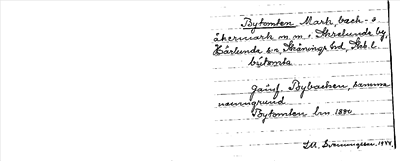 Bytomten Mark, back- o
åkermark m.m. i Skeslunda by,
Härlunda sn, Skånings hd, Skb. l.
bytomta
Jämf. Bybacken, samma
namngrund
Bytomten lm 1890
1944.